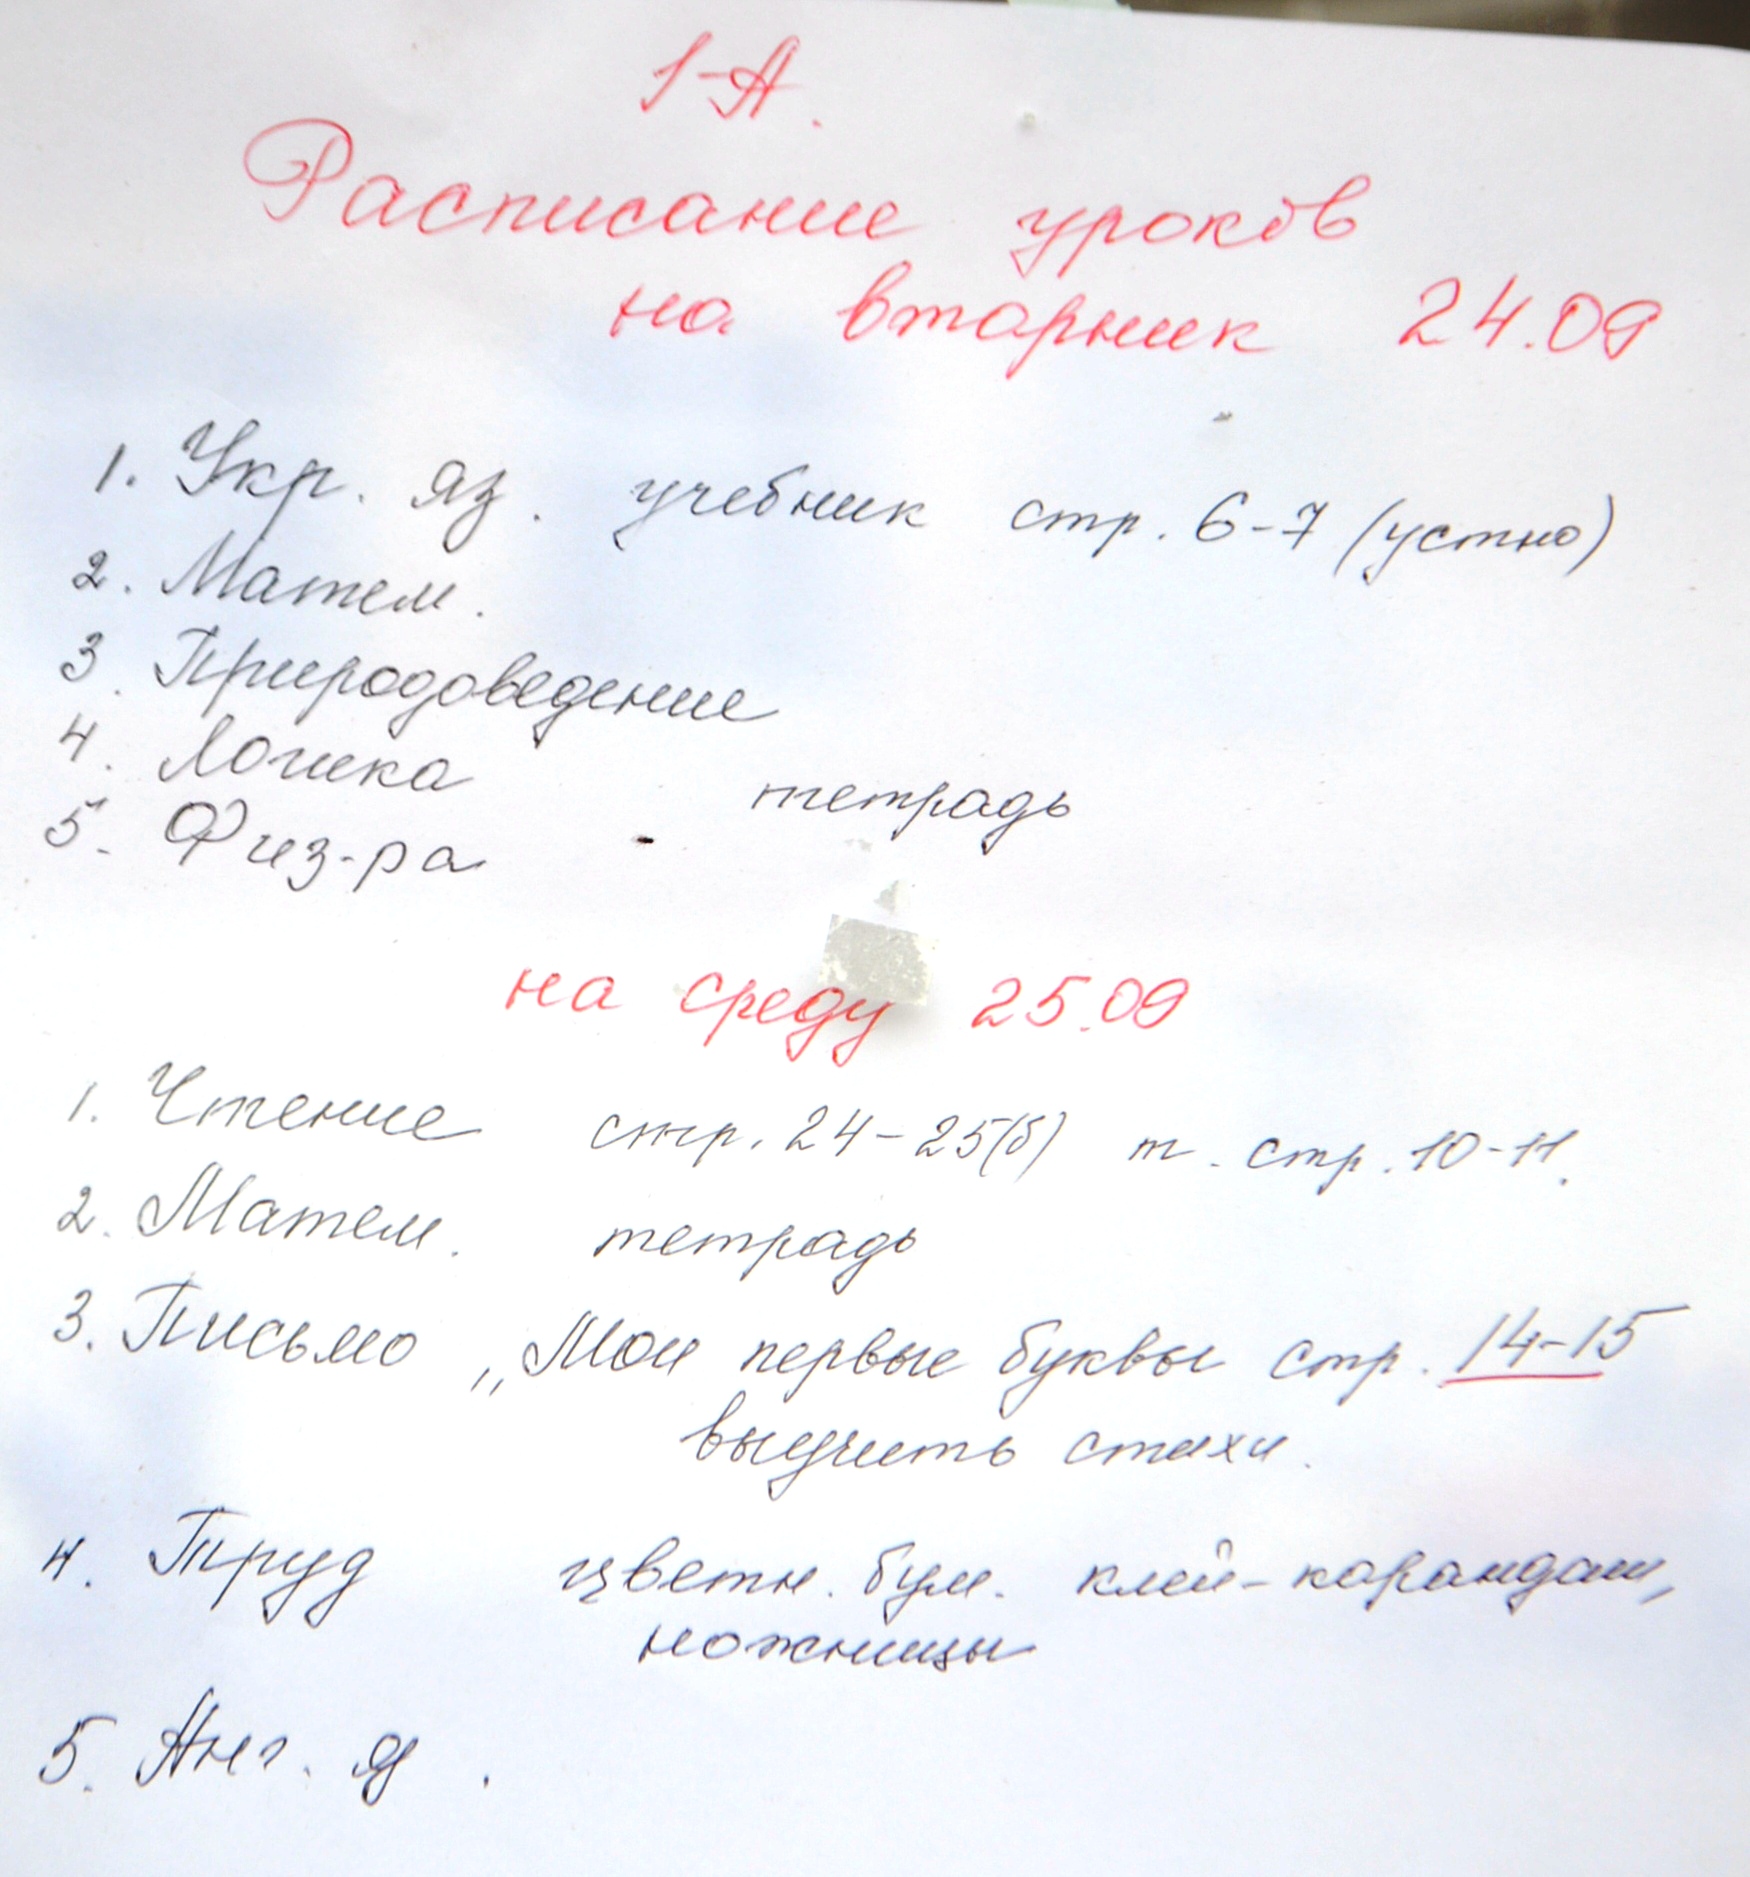 1-А.
Расписание уроков
на вторник 24.09
1. Укр. яз. учебник стр. 6-7 (устно)
2. Матем.
3. Природоведение
4. Логика тетрадь
5. Физ-ра
на среду 25.09
1. Чтение стр. 24-25(б) т. стр. 10-11.
2. Матем. тетрадь
3. Письмо „Мои первые буквы стр. 14-15
выучить стихи.
4. Труд цветн. бум. клей-карандаш,
ножницы
5. Анг. я.